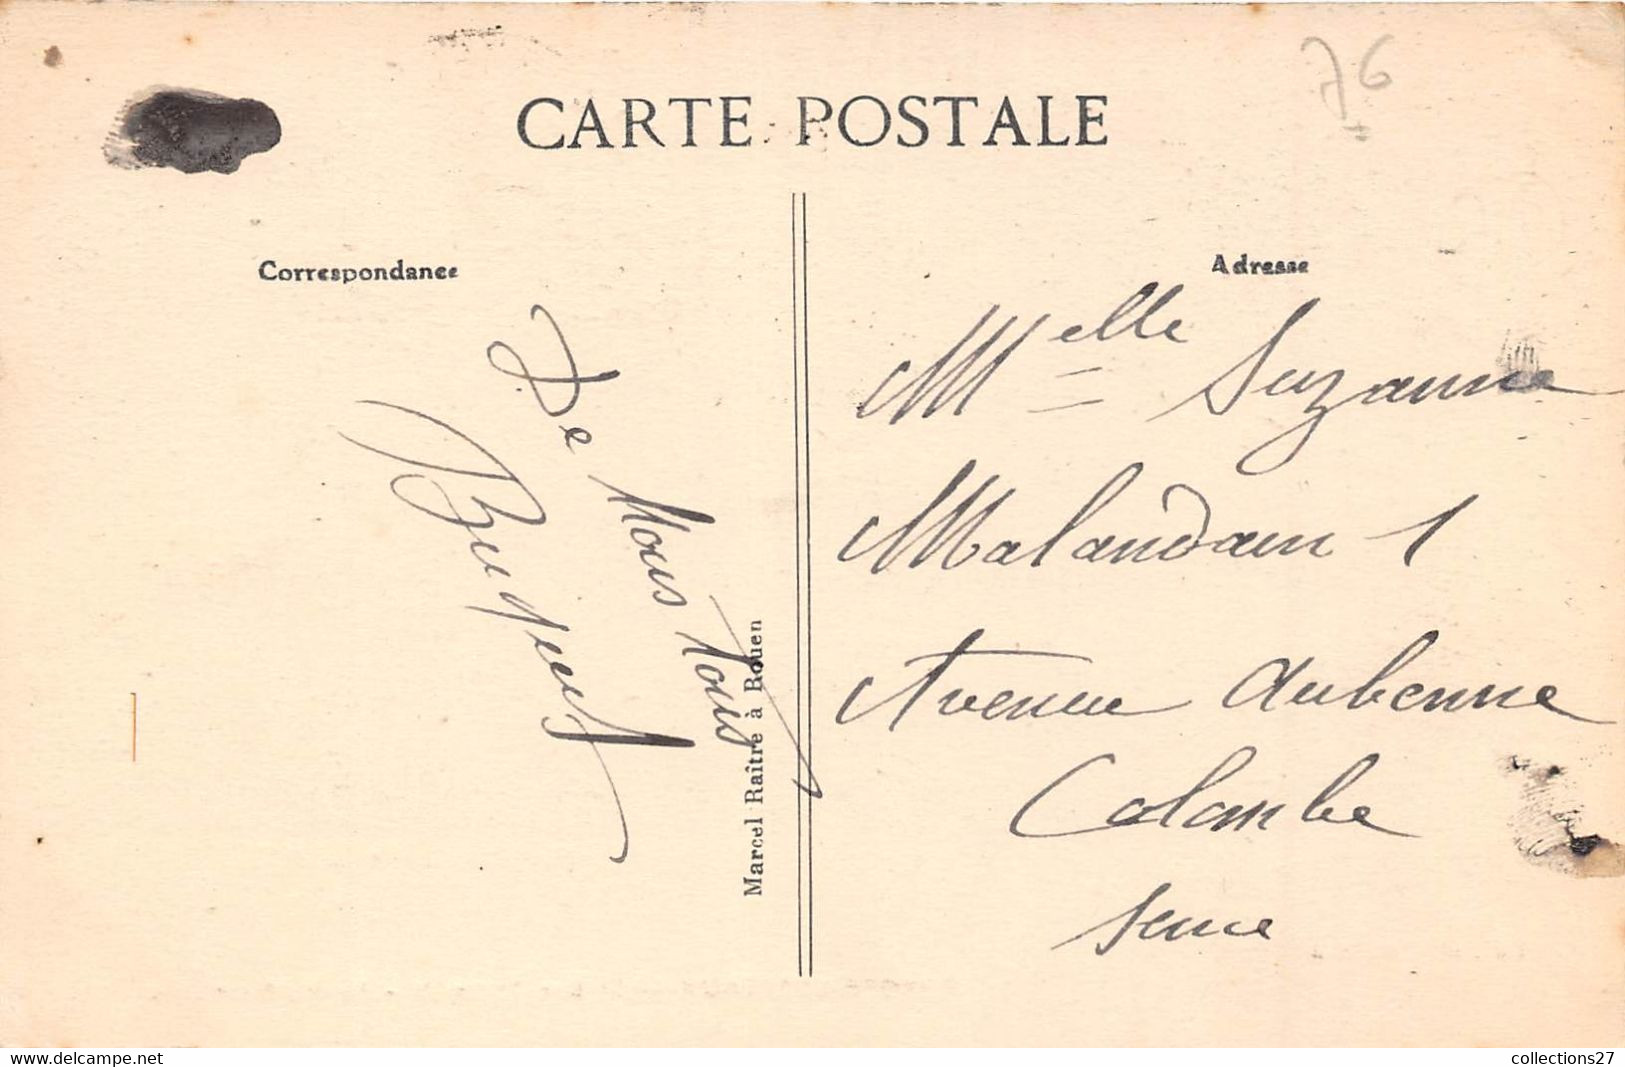 CARTE POSTALE
76
Correspondance
De Nous Tous
Marcel Raître à Rouen
Adresse
Melle Suzanne
Malandain 1
Avenue Aubenne
Colombe
Seine
www.delcampe.net
collections27